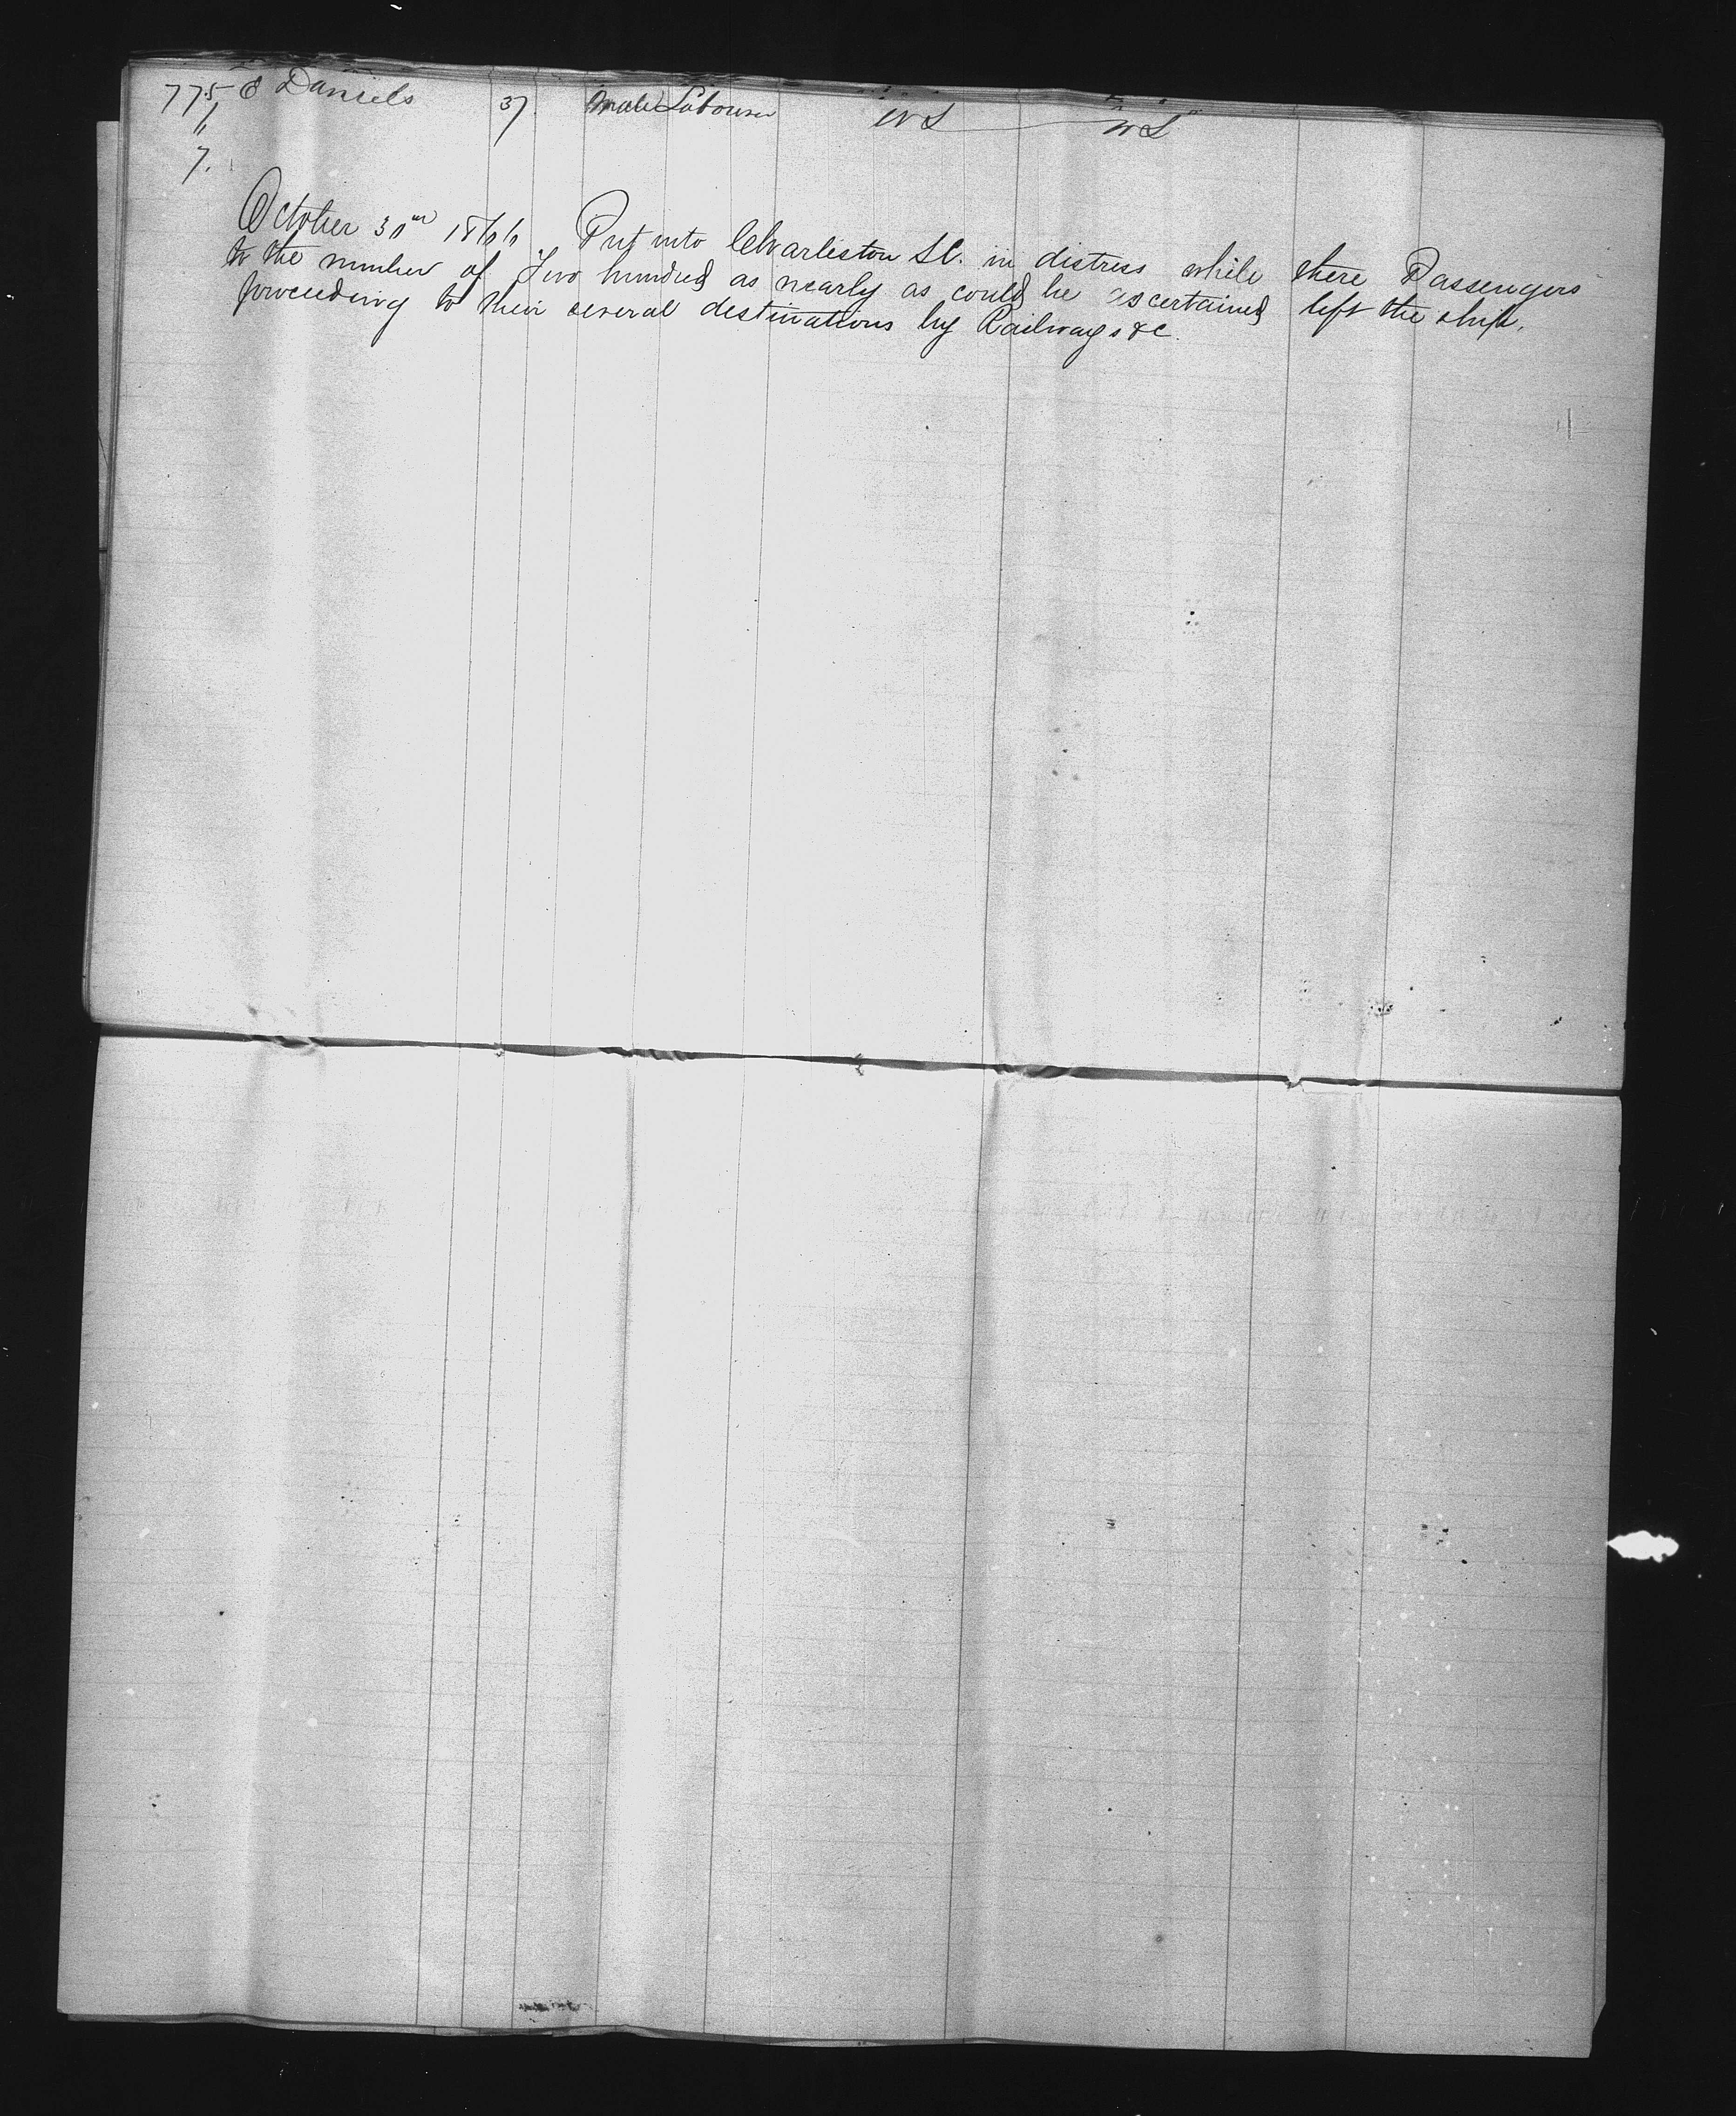 775 E Daniels 37. Male Labourer
"
7.
October 30th 1866 Put into Charleston S.C. in distress while there Passengers
to the number of Two hundred as nearly as could be ascertained left the ship,
proceeding to their several destinations by Railways &c.